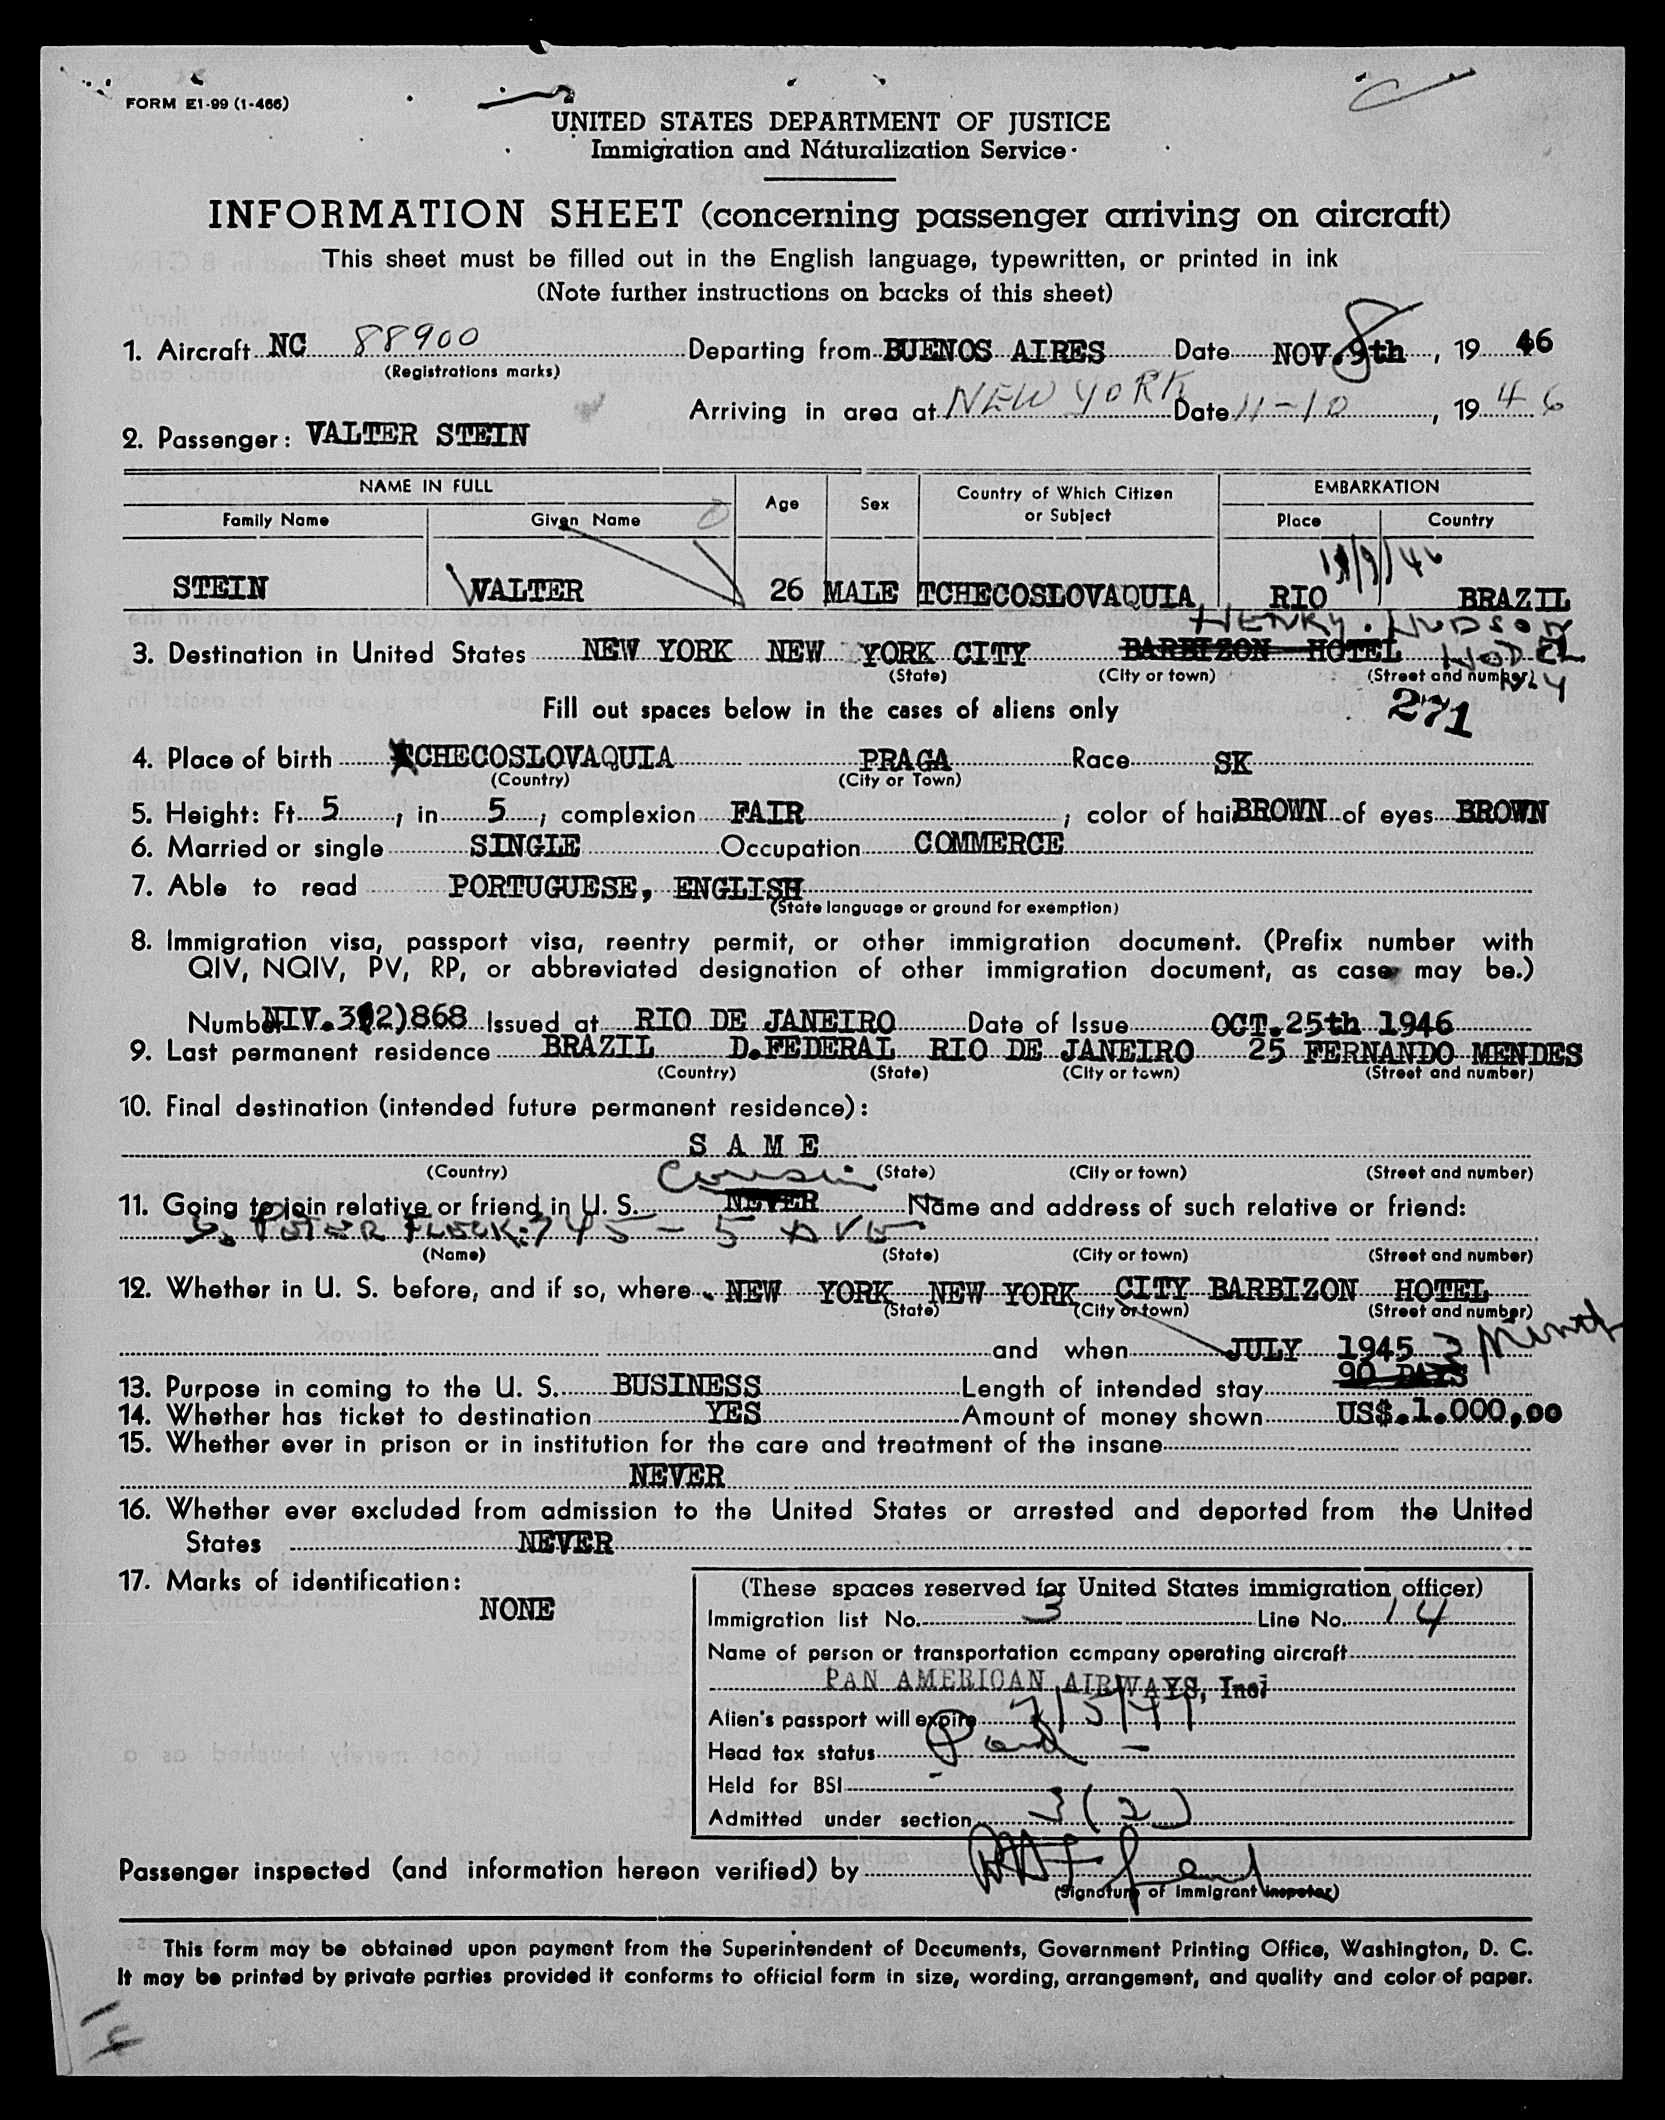 FORM E1-99 (1-466)
UNITED STATES DEPARTMENT OF JUSTICE
Immigration and Naturalization Service
INFORMATION SHEET (concerning passenger arriving on aircraft)
This sheet must be filled out in the English language, typewritten, or printed in ink
(Note further instructions on backs of this sheet)
1. Aircraft NC 88900 Departing from BUENOS AIRES Date NOV. 8 9th, 19 46
(Registrations marks)
Arriving in area at NEW YORK Date 11-10, 19 46
2. Passenger: VALTER STEIN
NAME IN FULL Age Sex Country of Which Citizen or Subject EMBARKATION
Family Name Given Name Place Country
11/9/46
STEIN VALTER 26 MALE TCHECOSLOVAQUIA RIO BRAZIL
HENRY HUDSON
3. Destination in United States NEW YORK NEW YORK CITY BARBIZON HOTEL HOTEL
(State) (City or town) (Street and number) N.Y
Fill out spaces below in the cases of aliens only 271
4. Place of birth TCHECOSLOVAQUIA PRAGA Race SK
(Country) (City or Town)
5. Height: Ft. 5, in 5; complexion FAIR; color of hai BROWN of eyes BROWN
6. Married or single SINGLE Occupation COMMERCE
7. Able to read PORTUGUESE, ENGLISH
(State language or ground for exemption)
8. Immigration visa, passport visa, reentry permit, or other immigration document. (Prefix number with
QIV, NQIV, PV, RP, or abbreviated designation of other immigration document, as case may be.)
Number NIV.3(2)868 Issued at RIO DE JANEIRO Date of Issue OCT.25th 1946
9. Last permanent residence BRAZIL D.FEDERAL RIO DE JANEIRO 25 FERNANDO MENDES
(Country) (State) (City or town) (Street and number)
10. Final destination (intended future permanent residence):
S A M E
(Country) (State) (City or town) (Street and number)
Cousin
11. Going to join relative or friend in U. S. NEVER Name and address of such relative or friend:
PETER FLECK: 745 - 5 AVE
(Name) (State) (City or town) (Street and number)
12. Whether in U. S. before, and if so, where NEW YORK NEW YORK CITY BARBIZON HOTEL
(State) (City or town) (Street and number)
and when JULY 1945 3 Months
13. Purpose in coming to the U. S. BUSINESS Length of intended stay 90 DAYS
14. Whether has ticket to destination YES Amount of money shown US$.1.000,00
15. Whether ever in prison or in institution for the care and treatment of the insane
NEVER
16. Whether ever excluded from admission to the United States or arrested and deported from the United
States NEVER
17. Marks of identification:
NONE
(These spaces reserved for United States immigration officer)
Immigration list No. 3 Line No. 14
Name of person or transportation company operating aircraft
PAN AMERICAN AIRWAYS, Inc.
Alien's passport will expire 7/5/47
Head tax status Paid -
Held for BSI -
Admitted under section 3(2)
Passenger inspected (and information hereon verified) by
(Signature of immigrant inspetor)
This form may be obtained upon payment from the Superintendent of Documents, Government Printing Office, Washington, D. C.
It may be printed by private parties provided it conforms to official form in size, wording, arrangement, and quality and color of paper.